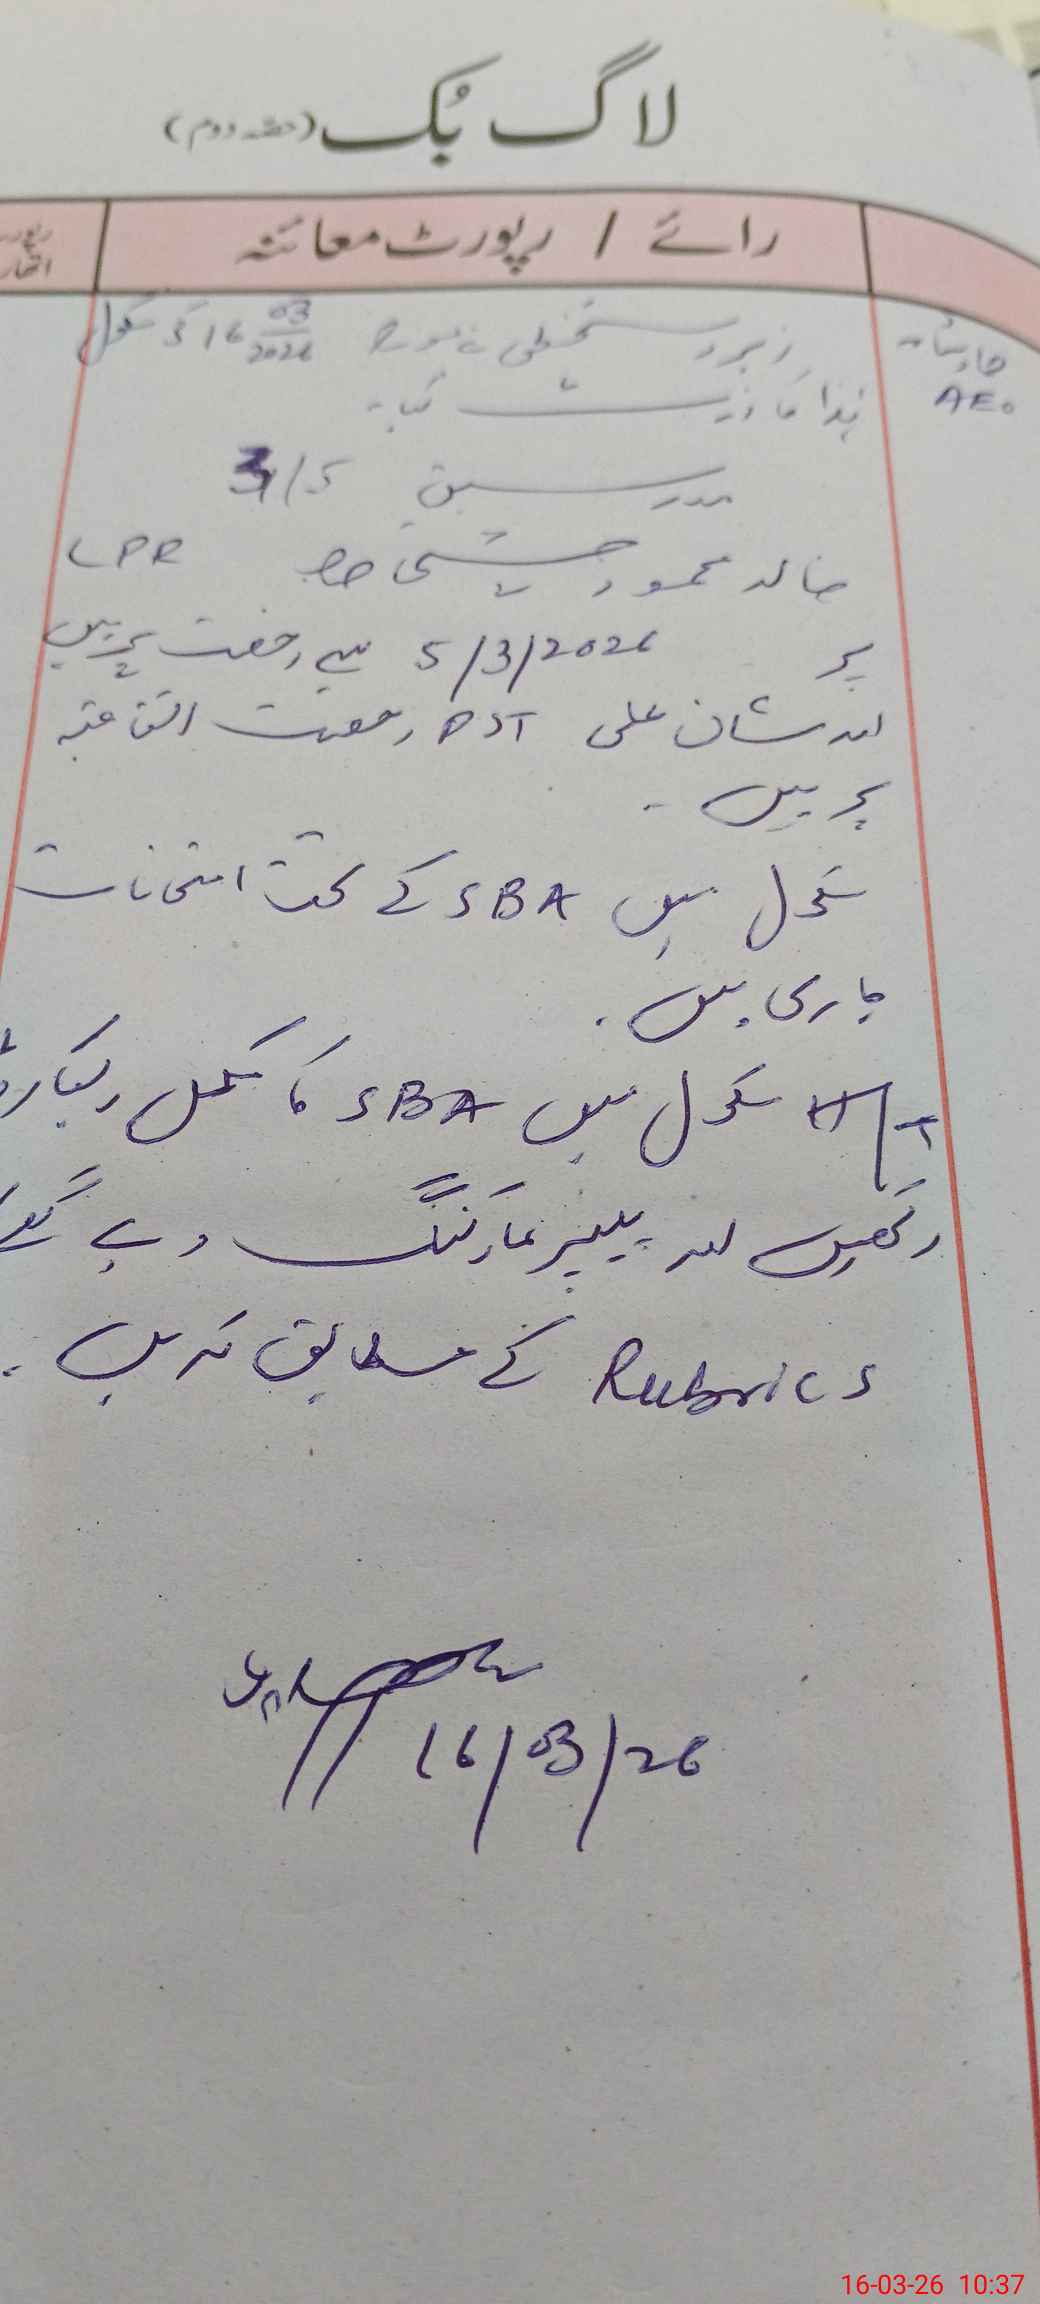 لاگ بُک (حصہ دوم)
رائے / رپورٹ معائنہ
AEO
زیر دستخطی نے مورخہ 16 03/2026 کو سکول
ہذا کا وزٹ کیا۔
مدرسین 3/5
خالد محمود چشتی صاحب LPR
پر 5/3/2026 سے رخصت پر ہیں
اور شان علی PST رخصت اتفاقیہ
پر ہیں۔
سکول میں SBA کے تحت امتحانات
جاری ہیں۔
H/T سکول میں SBA کا مکمل ریکارڈ
رکھیں اور پیپر مارکنگ دیے گئے
Rubrics کے مطابق کریں۔
16/03/26
16-03-26 10:37